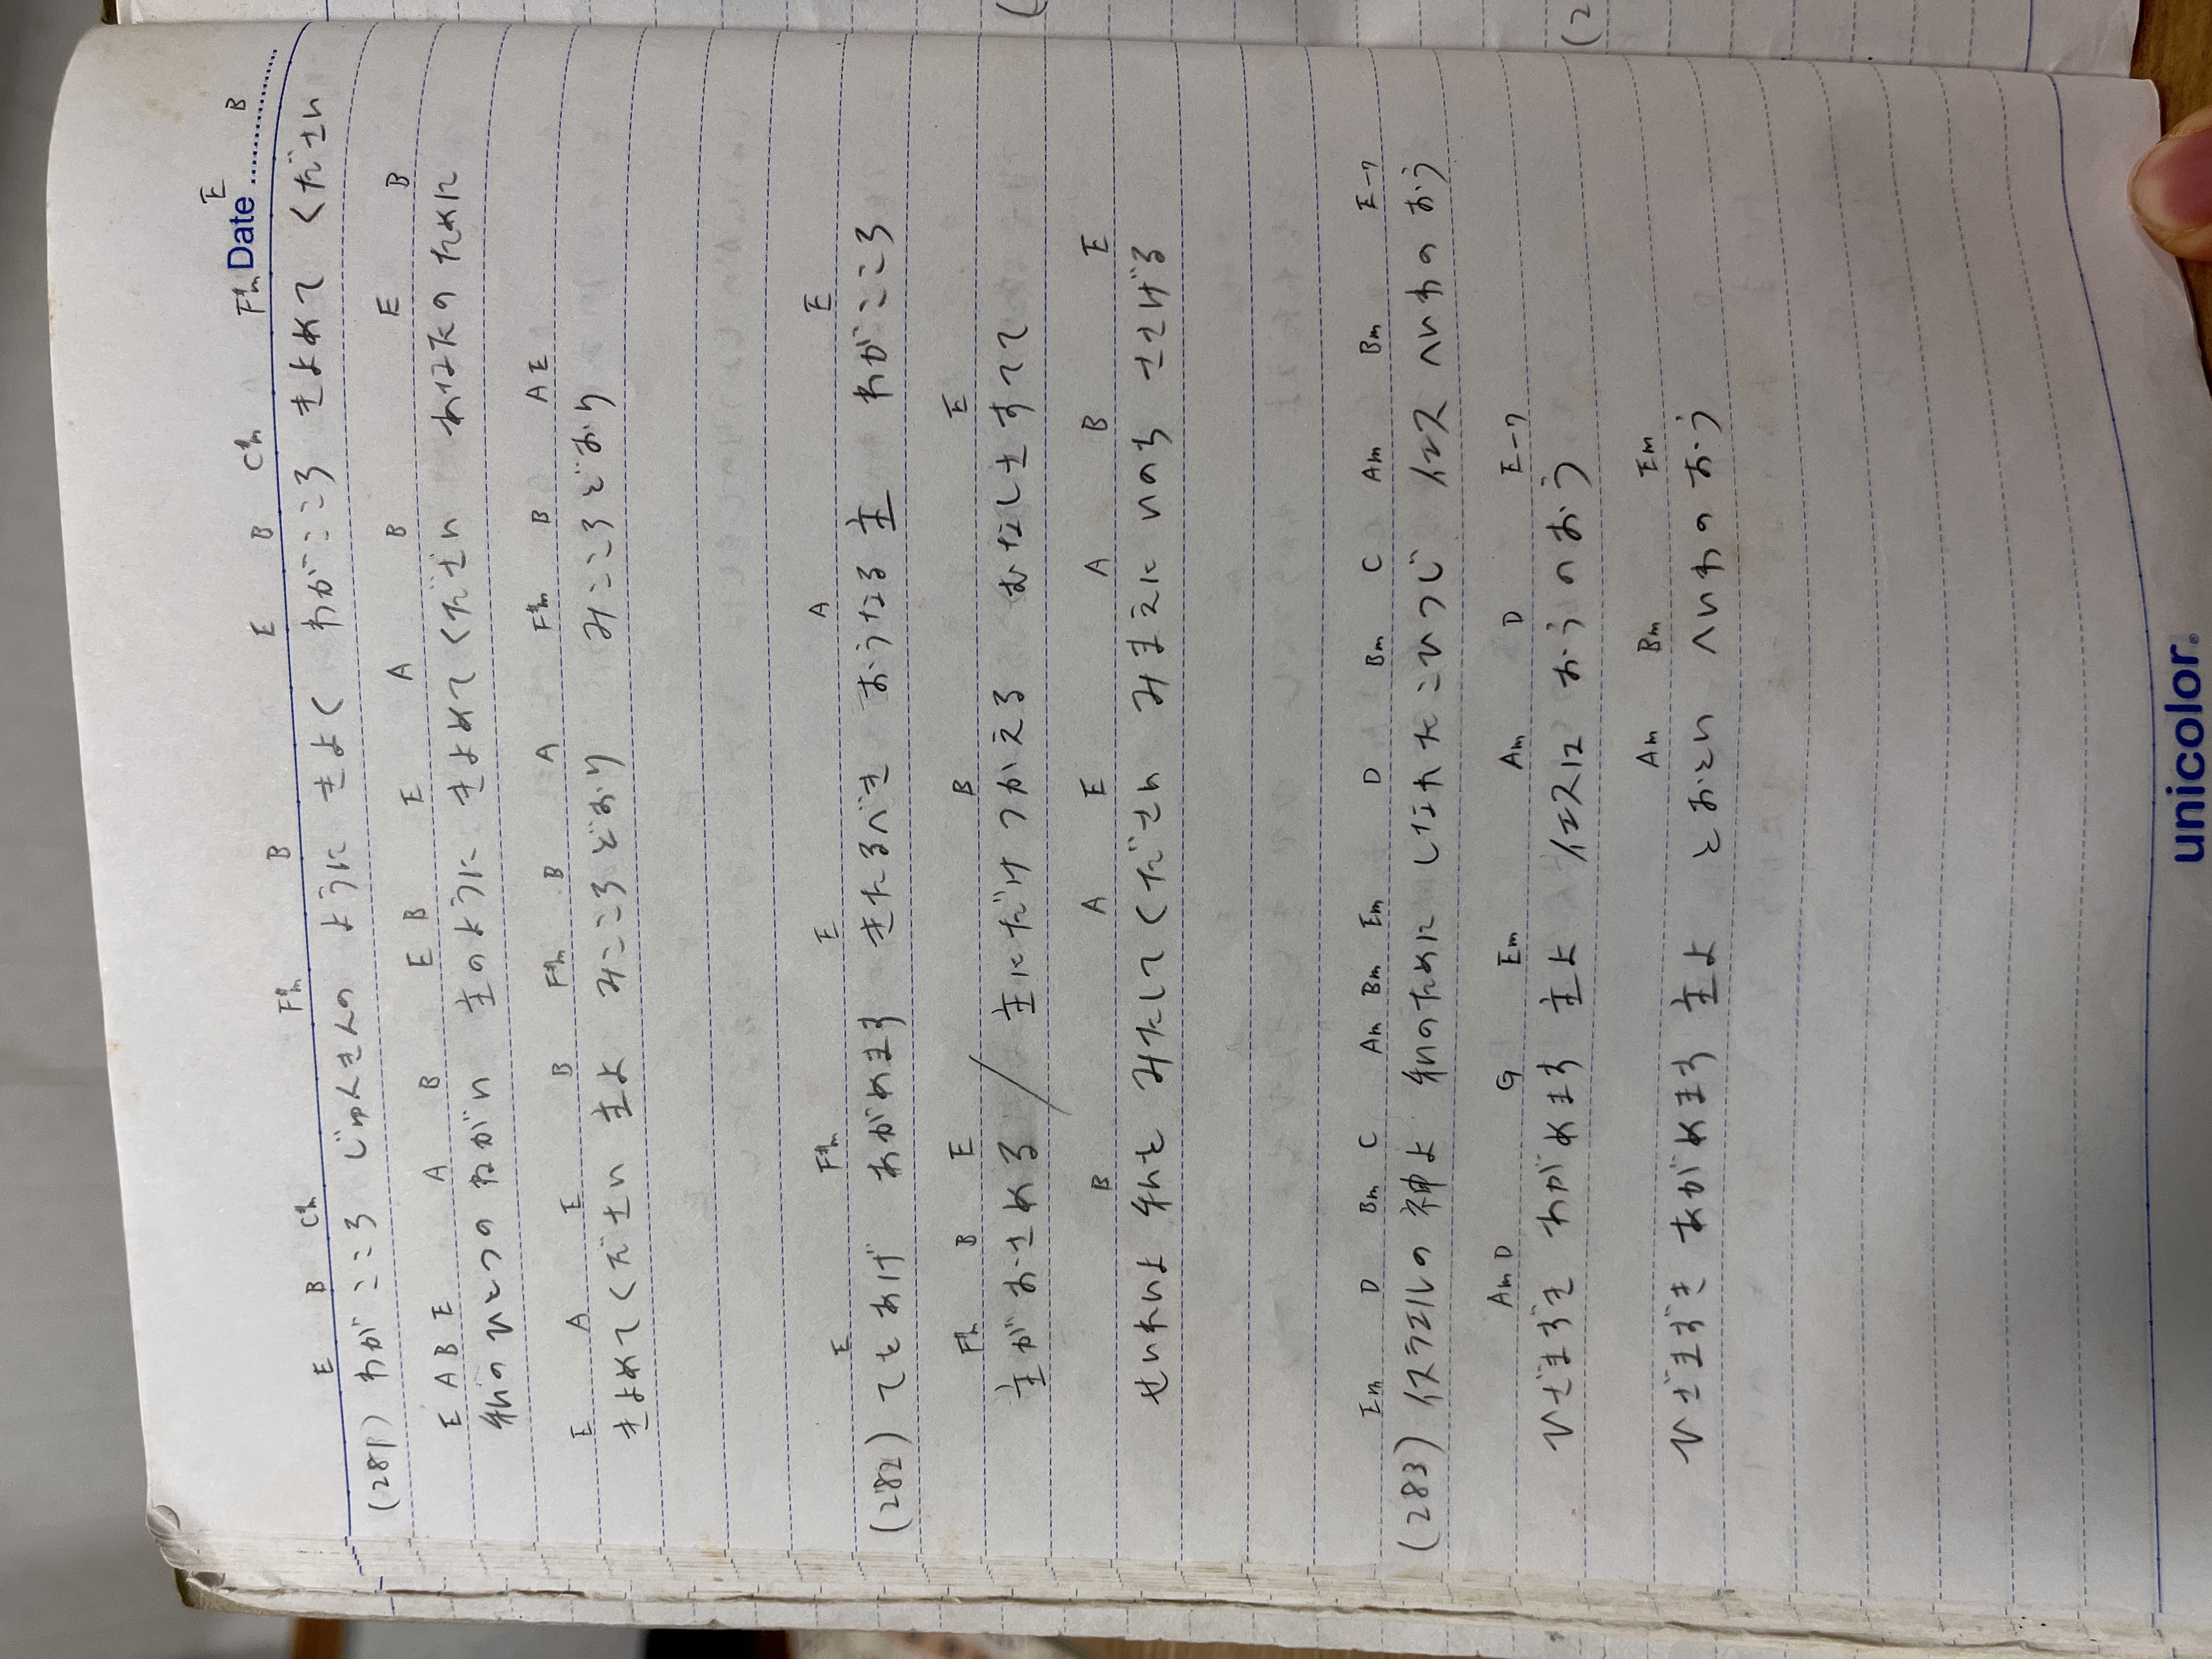 Date
E B C#m F#m B E B C#m F#m E B
(281) わがこころ じゅんきんの ように きよく わがこころ きよめて ください
E A B E A B E B E A B E B
私のひとつの ねがい 主のように きよめてください あなたのために
E A E B F#m B A F#m B A E
きよめてください 主よ みこころどおり みこころどおり
E F#m E A E
(282) てをあげ あがめます きたるべき おうなる主 わがこころ
F#m B E B E
主がおさめる / 主にだけつかえる むなしさすてて
B A E A B E
せいれいよ 私を みたしてください みまえに いのち ささげる
Em D Bm C Am Bm Em D Bm C Am Bm E-7
(283) イスラエルの神よ 私のために しなれたこひつじ イエス へいわの おう
Am D G Em Am D E-7
ひざまずき あがめます 主よ イエスは おうのおう
Am Bm Em
ひざまずき あがめます 主よ とおとい へいわの おう
unicolor.